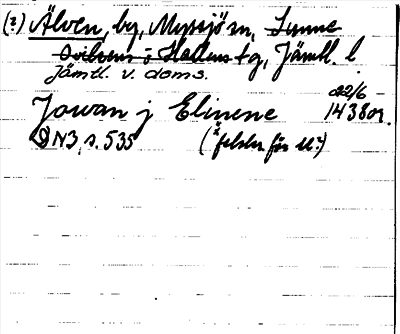 (?) Älven, by, Myssjö sn, Sunne
Oviken o Hallens tg, Jämtl. l
Jämtl. v. doms.
Jowan j Elinene 22/6 1438 or.
DN3, s. 535 (*felskr. för Ä?)